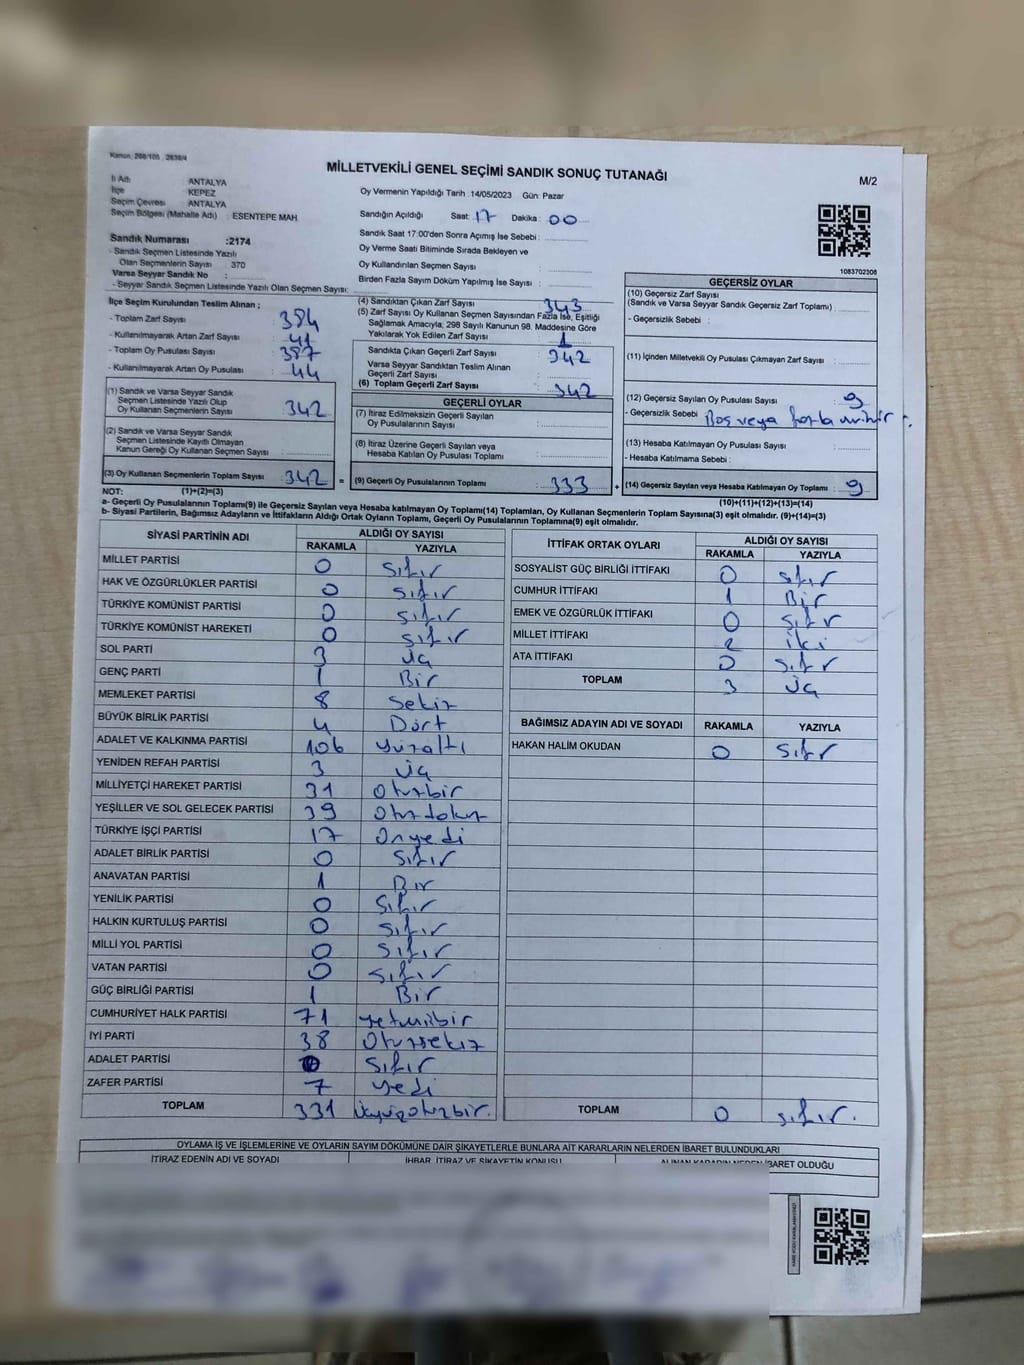 Kanun: 298/105 , 2839/4
MİLLETVEKİLİ GENEL SEÇİMİ SANDIK SONUÇ TUTANAĞI
M/2
İl Adı : ANTALYA
İlçe : KEPEZ
Seçim Çevresi : ANTALYA
Seçim Bölgesi (Mahalle Adı) : ESENTEPE MAH
Oy Vermenin Yapıldığı Tarih :14/05/2023 Gün: Pazar
Sandığın Açıldığı Saat: 17 Dakika: 00
Sandık Saat 17:00'den Sonra Açımış İse Sebebi :
Oy Verme Saati Bitiminde Sırada Bekleyen ve
Oy Kullandırılan Seçmen Sayısı :
Birden Fazla Sayım Döküm Yapılmış İse Sayısı :
1083702308
Sandık Numarası :2174
- Sandık Seçmen Listesinde Yazılı
Olan Seçmenlerin Sayısı : 370
Varsa Seyyar Sandık No :
- Seyyar Sandık Seçmen Listesinde Yazılı Olan Seçmen Sayısı:
İlçe Seçim Kurulundan Teslim Alınan ;
- Toplam Zarf Sayısı : 384
- Kullanılmayarak Artan Zarf Sayısı : 41
- Toplam Oy Pusulası Sayısı : 387
- Kullanılmayarak Artan Oy Pusulası : 44
(1) Sandık ve Varsa Seyyar Sandık
Seçmen Listesinde Yazılı Olup
Oy Kullanan Seçmenlerin Sayısı : 342
(2) Sandık ve Varsa Seyyar Sandık
Seçmen Listesinde Kayıtlı Olmayan
Kanun Gereği Oy Kullanan Seçmen Sayısı :
(3) Oy Kullanan Seçmenlerin Toplam Sayısı : 342
(1)+(2)=(3)
(4) Sandıktan Çıkan Zarf Sayısı : 343
(5) Zarf Sayısı Oy Kullanan Seçmen Sayısından Fazla İse, Eşitliği
Sağlamak Amacıyla; 298 Sayılı Kanunun 98. Maddesine Göre
Yakılarak Yok Edilen Zarf Sayısı : 1
Sandıkta Çıkan Geçerli Zarf Sayısı : 342
Varsa Seyyar Sandıktan Teslim Alınan
Geçerli Zarf Sayısı :
(6) Toplam Geçerli Zarf Sayısı : 342
GEÇERLİ OYLAR
(7) İtiraz Edilmeksizin Geçerli Sayılan
Oy Pusulalarının Sayısı :
(8) İtiraz Üzerine Geçerli Sayılan veya
Hesaba Katılan Oy Pusulası Toplamı :
= (9) Geçerli Oy Pusulalarının Toplamı : 333 +
GEÇERSİZ OYLAR
(10) Geçersiz Zarf Sayısı
(Sandık ve Varsa Seyyar Sandık Geçersiz Zarf Toplamı) :
- Geçersizlik Sebebi :
(11) İçinden Milletvekili Oy Pusulası Çıkmayan Zarf Sayısı :
(12) Geçersiz Sayılan Oy Pusulası Sayısı : 9
- Geçersizlik Sebebi : Boş veya fazla mühür
(13) Hesaba Katılmayan Oy Pusulası Sayısı :
- Hesaba Katılmama Sebebi :
(14) Geçersiz Sayılan veya Hesaba Katılmayan Oy Toplamı : 9
(10)+(11)+(12)+(13)=(14)
NOT:
a- Geçerli Oy Pusulalarının Toplamı(9) ile Geçersiz Sayılan veya Hesaba katılmayan Oy Toplamı(14) Toplamları, Oy Kullanan Seçmenlerin Toplam Sayısına(3) eşit olmalıdır. (9)+(14)=(3)
b- Siyasi Partilerin, Bağımsız Adayların ve İttifakların Aldığı Ortak Oyların Toplamı, Geçerli Oy Pusulalarının Toplamına(9) eşit olmalıdır.
SİYASİ PARTİNİN ADI ALDIĞI OY SAYISI
RAKAMLA YAZIYLA
MİLLET PARTİSİ 0 sıfır
HAK VE ÖZGÜRLÜKLER PARTİSİ 0 sıfır
TÜRKİYE KOMÜNİST PARTİSİ 0 sıfır
TÜRKİYE KOMÜNİST HAREKETİ 0 sıfır
SOL PARTİ 3 üç
GENÇ PARTİ 1 Bir
MEMLEKET PARTİSİ 8 Sekiz
BÜYÜK BİRLİK PARTİSİ 4 Dört
ADALET VE KALKINMA PARTİSİ 106 yüzaltı
YENİDEN REFAH PARTİSİ 3 üç
MİLLİYETÇİ HAREKET PARTİSİ 31 Otuzbir
YEŞİLLER VE SOL GELECEK PARTİSİ 39 Otuzdokuz
TÜRKİYE İŞÇİ PARTİSİ 17 Onyedi
ADALET BİRLİK PARTİSİ 0 Sıfır
ANAVATAN PARTİSİ 1 Bir
YENİLİK PARTİSİ 0 Sıfır
HALKIN KURTULUŞ PARTİSİ 0 sıfır
MİLLİ YOL PARTİSİ 0 sıfır
VATAN PARTİSİ 0 sıfır
GÜÇ BİRLİĞİ PARTİSİ 1 Bir
CUMHURİYET HALK PARTİSİ 71 yetmişbir
İYİ PARTİ 38 Otuzsekiz
ADALET PARTİSİ 0 Sıfır
ZAFER PARTİSİ 7 yedi
TOPLAM 331 üçyüzotuzbir.
İTTİFAK ORTAK OYLARI ALDIĞI OY SAYISI
RAKAMLA YAZIYLA
SOSYALİST GÜÇ BİRLİĞİ İTTİFAKI 0 sıfır
CUMHUR İTTİFAKI 1 Bir
EMEK VE ÖZGÜRLÜK İTTİFAKI 0 sıfır
MİLLET İTTİFAKI 2 iki
ATA İTTİFAKI 0 sıfır
TOPLAM 3 üç
BAĞIMSIZ ADAYIN ADI VE SOYADI RAKAMLA YAZIYLA
HAKAN HALİM OKUDAN 0 sıfır
TOPLAM 0 sıfır.
OYLAMA İŞ VE İŞLEMLERİNE VE OYLARIN SAYIM DÖKÜMÜNE DAİR ŞİKAYETLERLE BUNLARA AİT KARARLARIN NELERDEN İBARET BULUNDUKLARI
İTİRAZ EDENİN ADI VE SOYADI İHBAR, İTİRAZ VE ŞİKAYETİN KONUSU ALINAN KARARIN NEDEN İBARET OLDUĞU